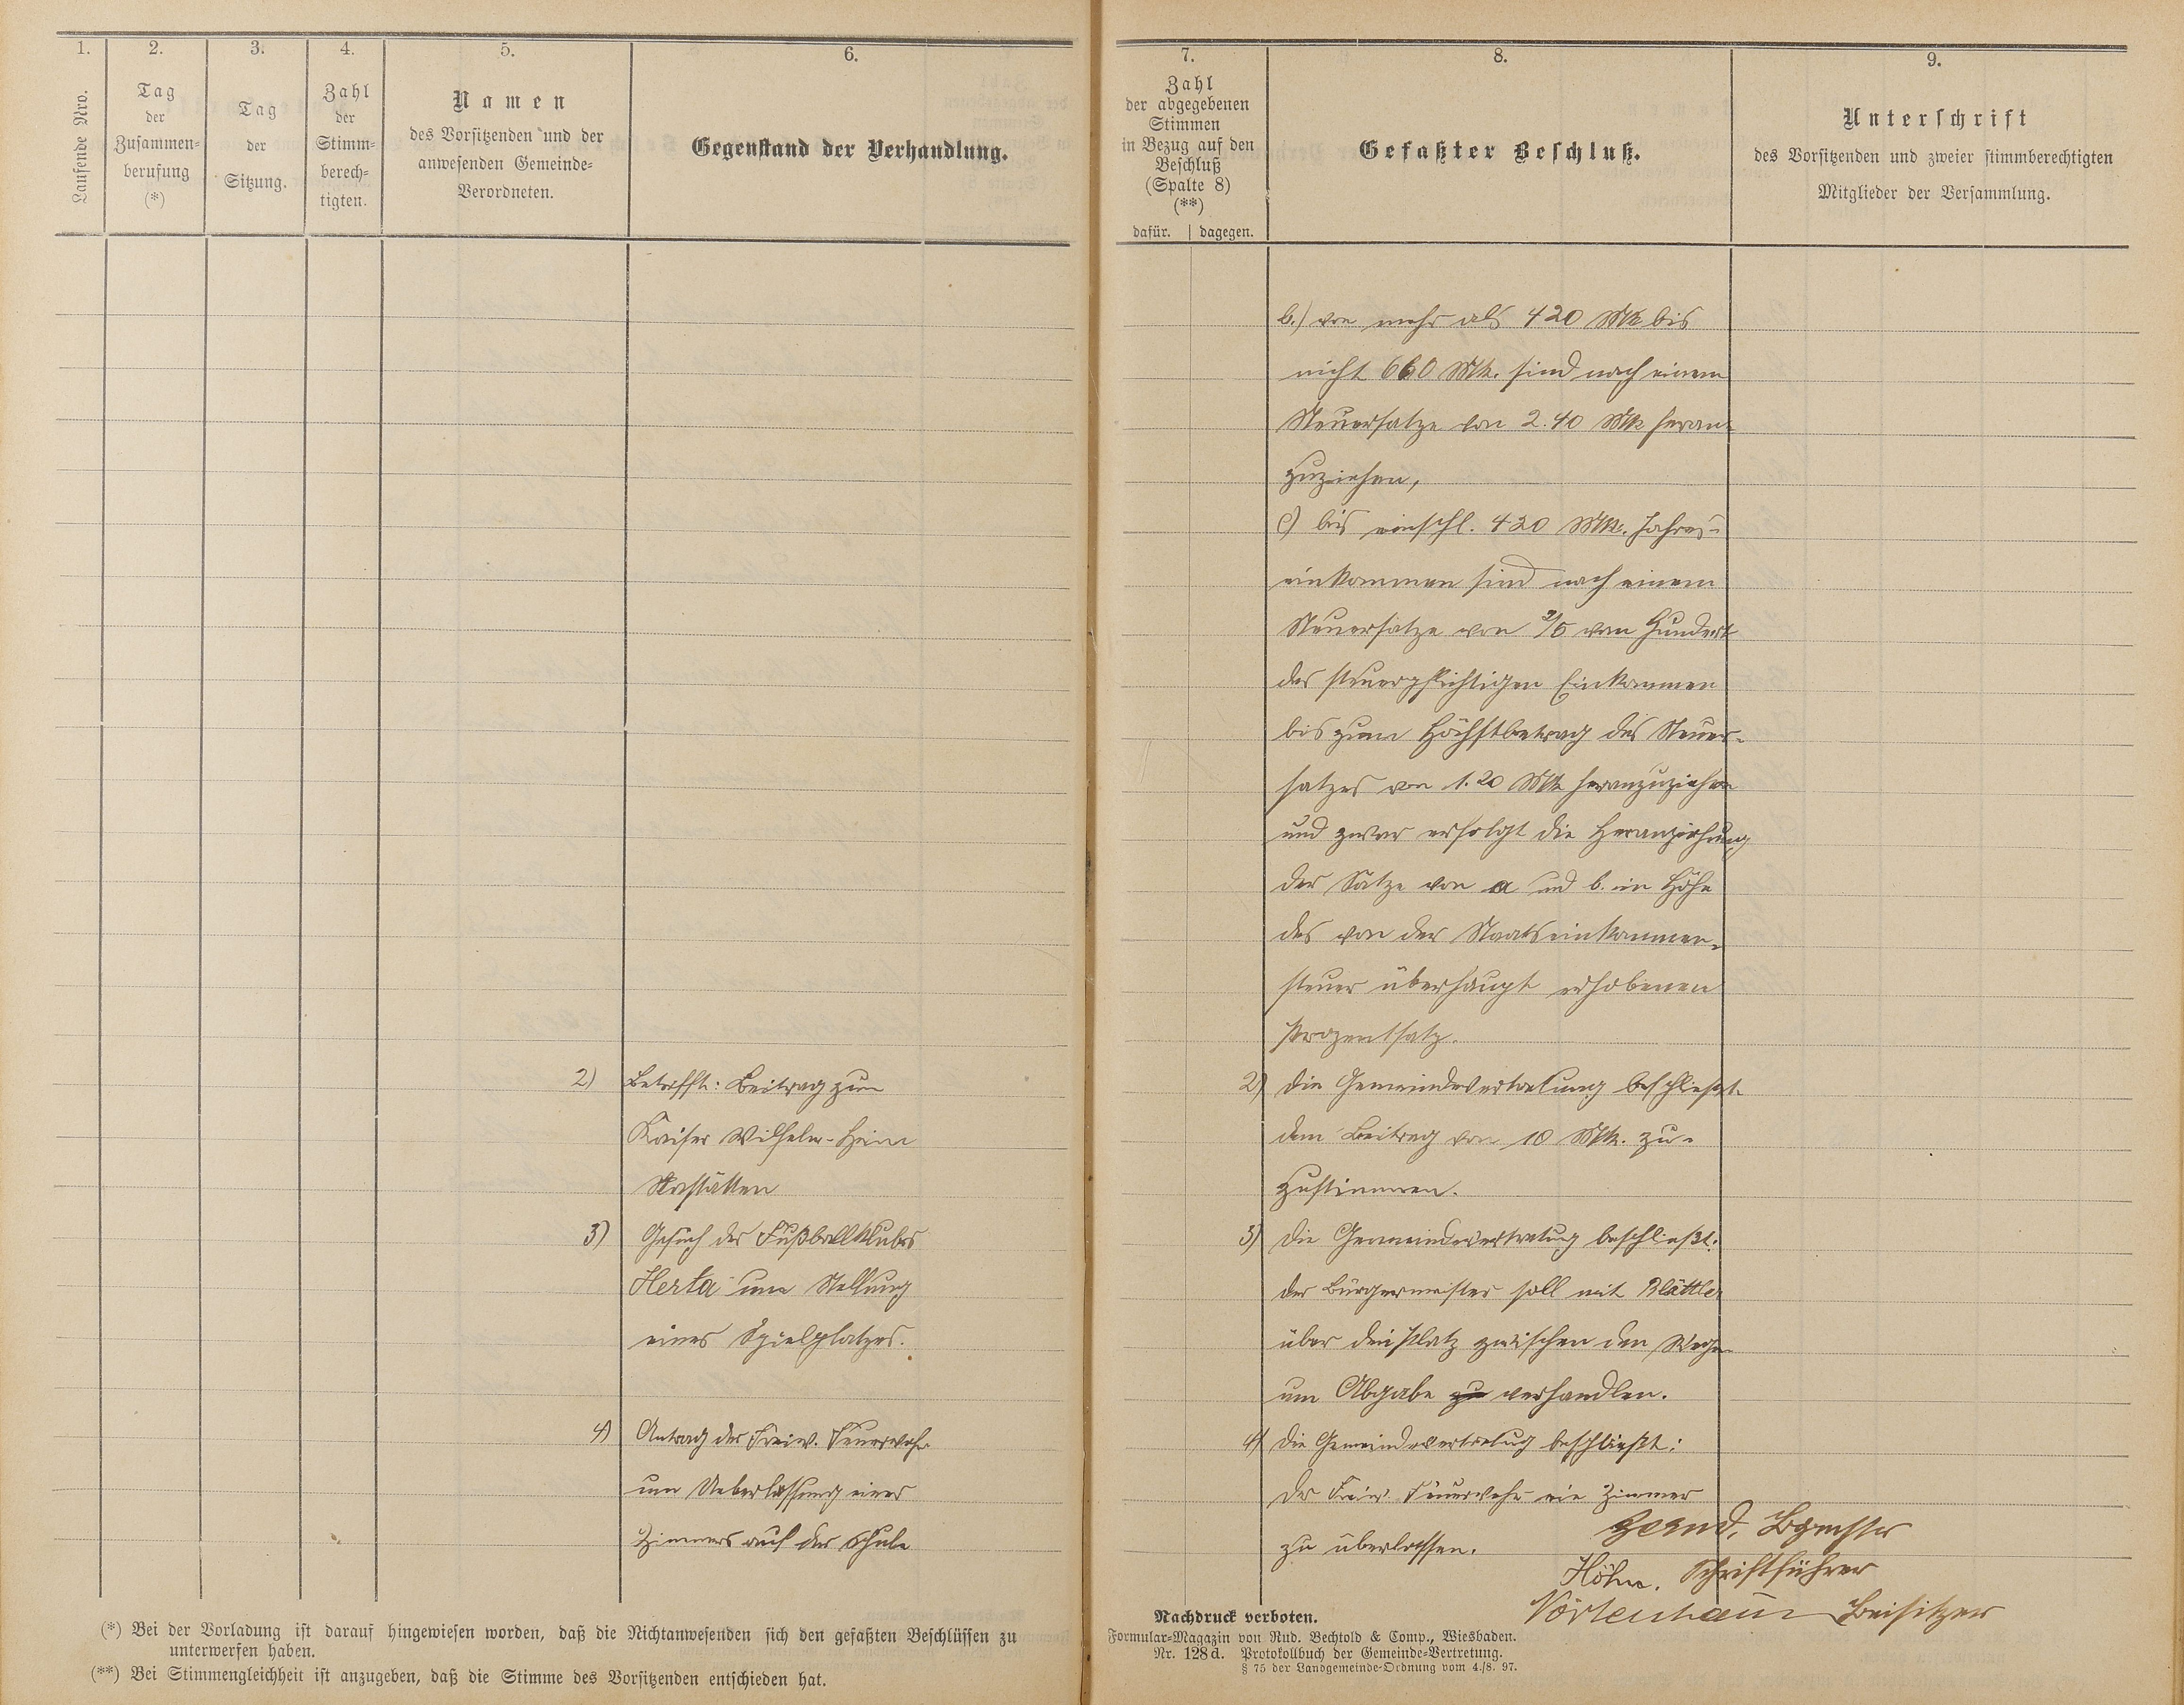 1.
Laufende Nro.
2.
Tag
der
Zusammen-
berufung
(*)
3.
Tag
der
Sitzung.
4.
Zahl
der
Stimm-
berech-
tigten.
5.
Namen
des Vorsitzenden und der
anwesenden Gemeinde-
Verordneten.
6.
Gegenstand der Verhandlung.
2) Betrifft: Beitrag zum
Kaiser Wilhelm-Heim
Nastätten
3) Gesuch des Fußballklubs
Herta um Stellung
eines Spielplatzes.
4) Antrag der Freiw. Feuerwehr
um Ueberlassung eines
Zimmers auf der Schule
(*) Bei der Vorladung ist darauf hingewiesen worden, daß die Nichtanwesenden sich den gefaßten Beschlüssen zu
unterwerfen haben.
(**) Bei Stimmengleichheit ist anzugeben, daß die Stimme des Vorsitzenden entschieden hat.
7.
Zahl
der abgegebenen
Stimmen
in Bezug auf den
Beschluß
(Spalte 8)
(**)
dafür. dagegen.
8.
Gefaßter Beschluß.
9.
Unterschrift
des Vorsitzenden und zweier stimmberechtigten
Mitglieder der Versammlung.
b.) von mehr als 420 Mk bis
nicht 660 Mk. sind nach einem
Steuersatze von 2.40 Mk heran-
zuziehen,
c) bis einschl. 420 Mk. Jahres-
einkommen sind nach einem
Steuersatze von 2/5 vom Hundert
des steuerpflichtigen Einkommen
bis zum Höchstbetrag des Steuer-
satzes von 1.20 Mk heranzuziehen
und zwar erfolgt die Heranziehung
der Sätze von a und b. in Höhe
des von der Staatseinkommen-
steuer überhaupt erhobenen
Prozentsatz.
2) Die Gemeindevertretung beschließt
dem Beitrag von 10 Mk. zu-
zustimmen.
3) Die Gemeindevertretung beschließt:
der Bürgermeister soll mit Blättler
über den Platz zwischen den Wegen
um Abgabe zu verhandlen.
4) Die Gemeindevertretug beschließt:
der Freiw. Feuerwehr ein Zimmer
zu überlassen.
Bgmstr
Höhn. Schriftführer
Beisitzer
Nachdruck verboten.
Formular-Magazin von Rud. Bechtold & Comp., Wiesbaden.
Nr. 128d. Protokollbuch der Gemeinde-Vertretung.
§ 75 der Landgemeinde-Ordnung vom 4./8. 97.